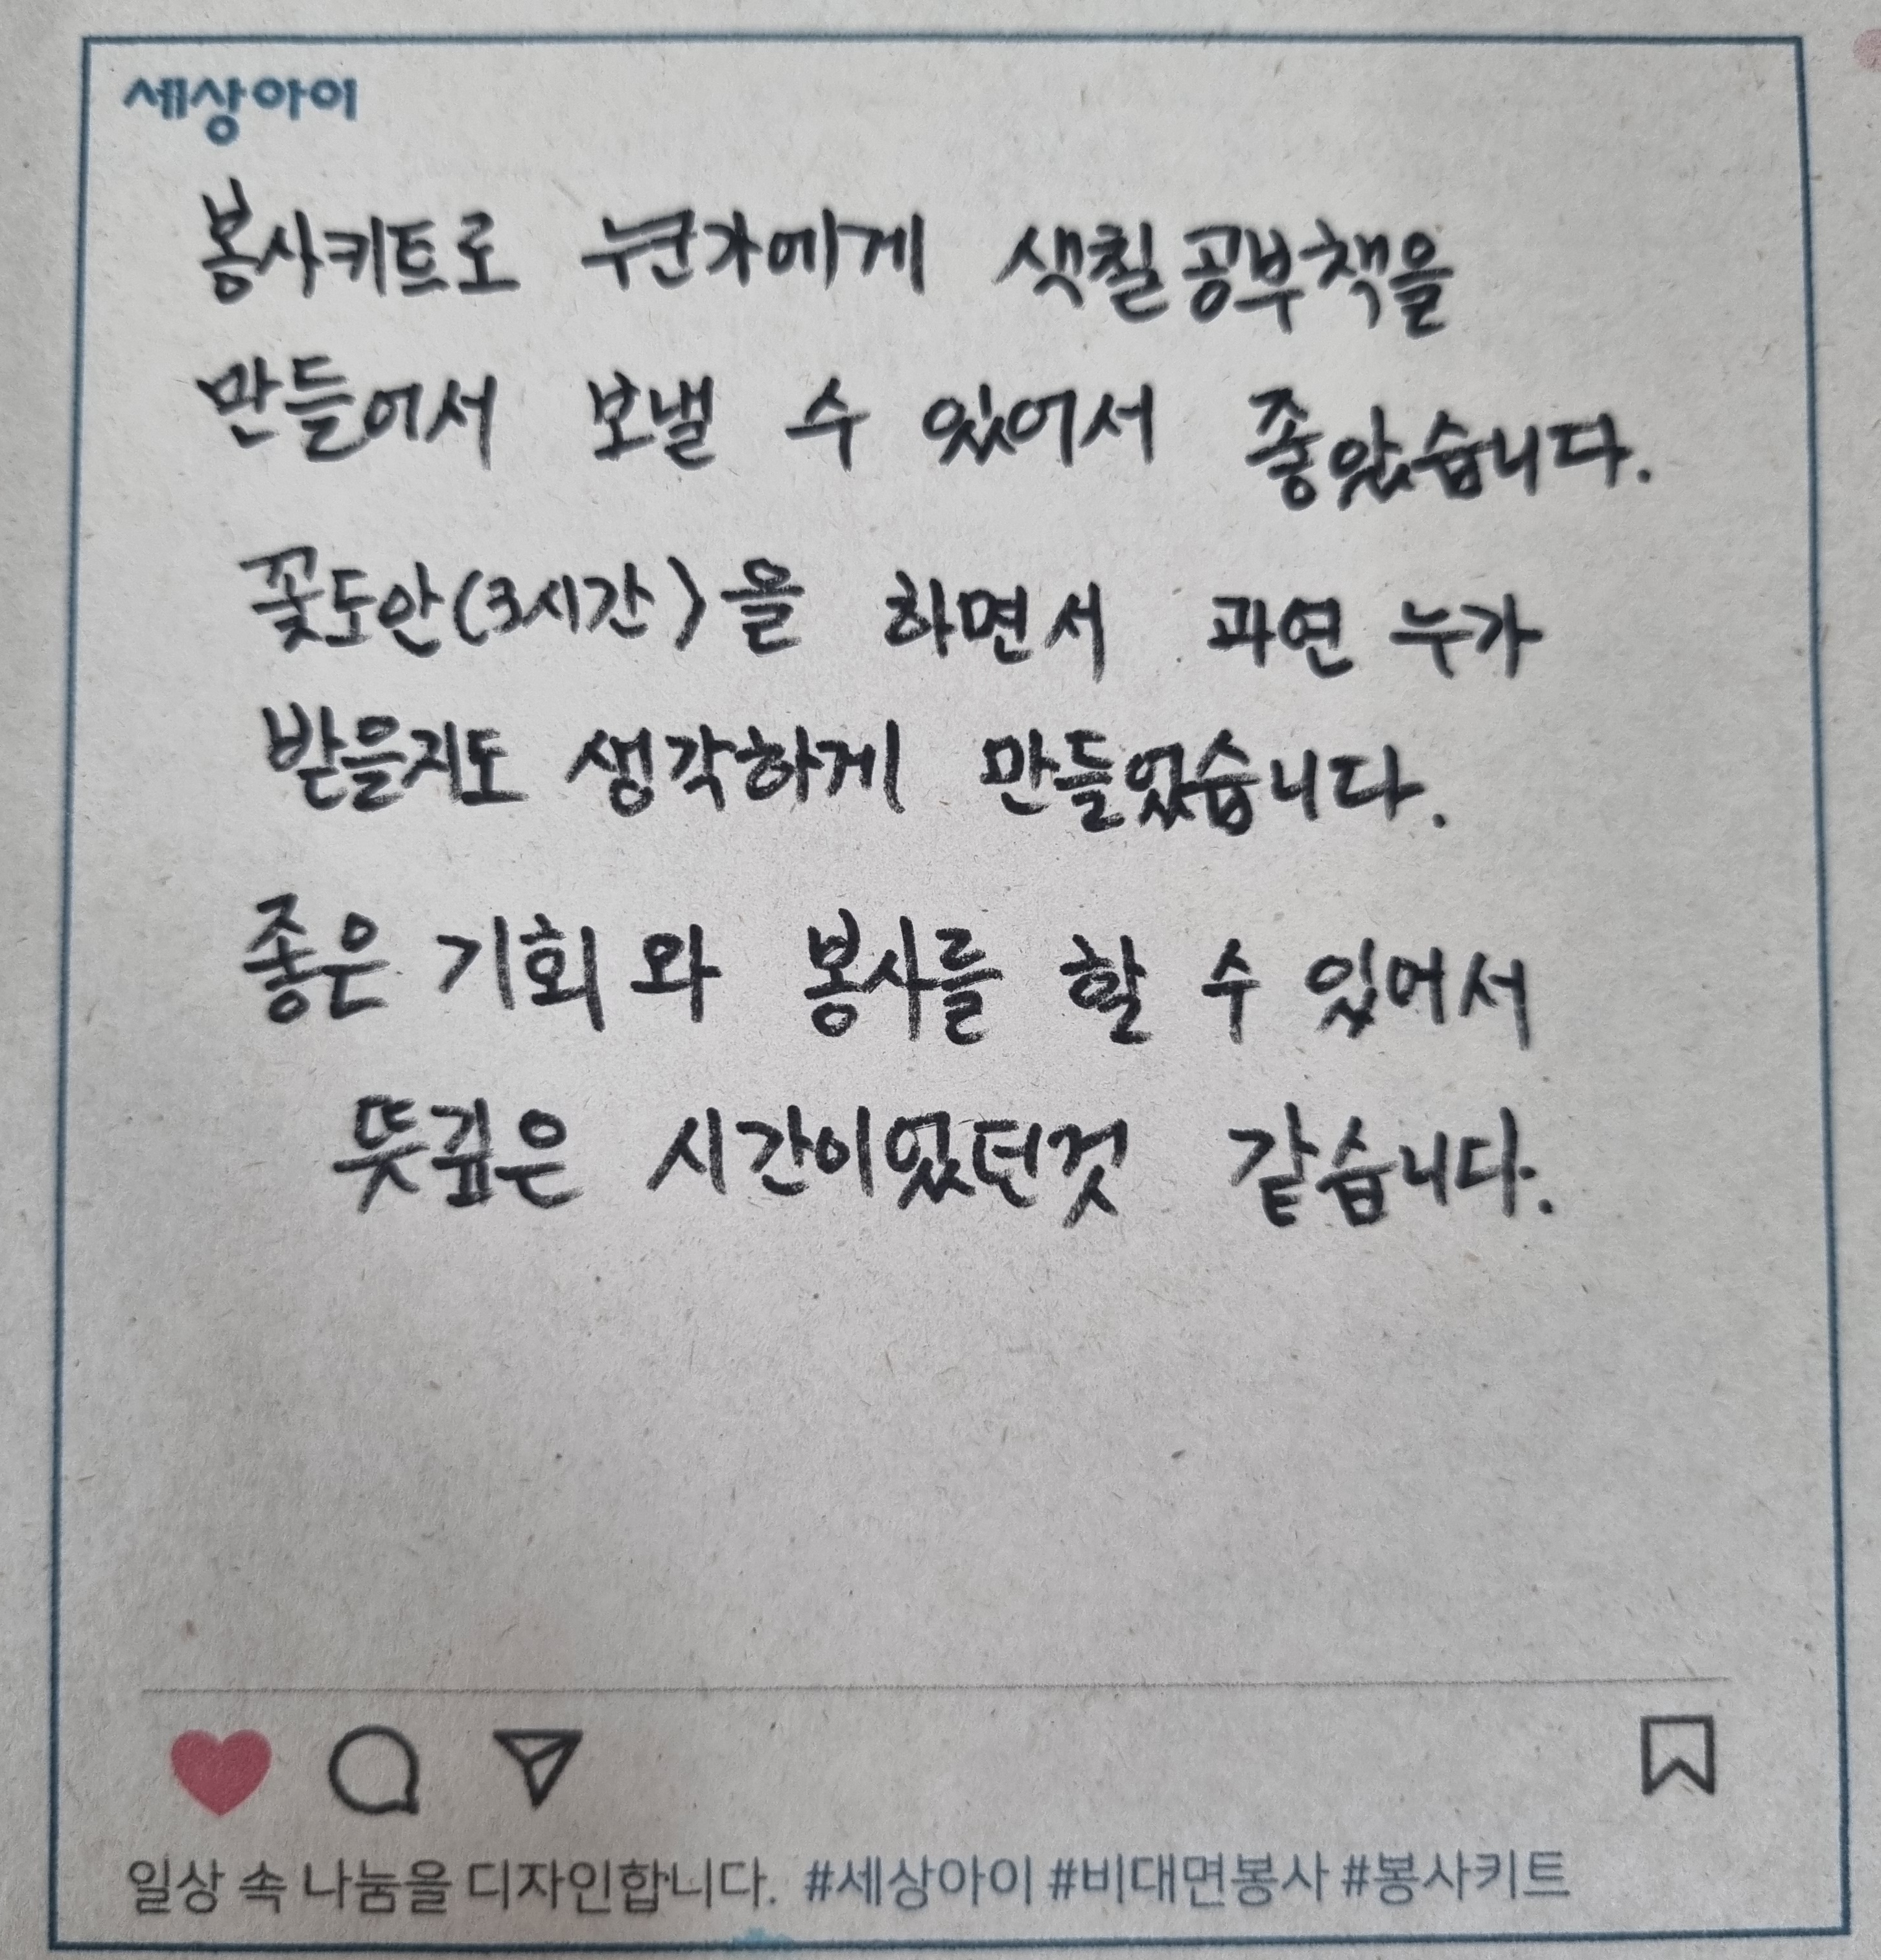 세상아이
봉사키트로 누군가에게 색칠공부책을
만들어서 보낼 수 있어서 좋았습니다.
꽃도안(3시간)을 하면서 과연 누가
받을지도 생각하게 만들었습니다.
좋은 기회와 봉사를 할 수 있어서
뜻깊은 시간이었던것 같습니다.
일상 속 나눔을 디자인합니다. #세상아이 #비대면봉사 #봉사키트